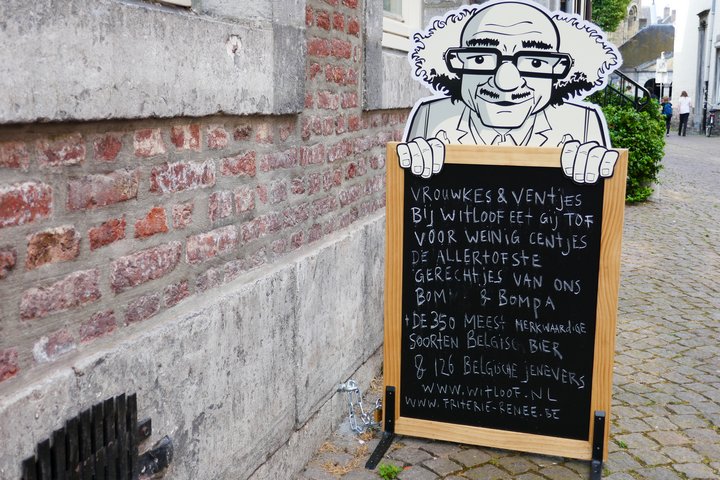 VROUWKES & VENTJES
BIJ WITLOOF EET GIJ TOF
VOOR WEINIG CENTJES
DE ALLERTOFSTE
GERECHTJES VAN ONS
BOMI & BOMPA
+ DE 350 MEEST MERKWAARDIGE
SOORTEN BELGISC BIER
& 126 BELGISCHE JENEVERS
WWW.WITLOOF.NL
WWW.FRITERIE-RENEE.BE